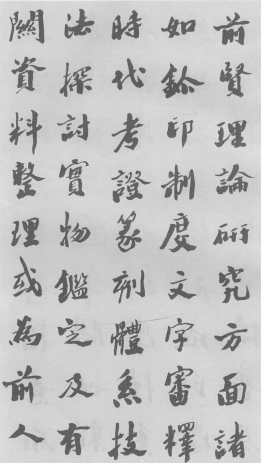 前賢理論研究方面諸
如鉩印制度文字審釋
時代考證篆刻體系技
法探討實物鑑定及有
關資料整理或為前人